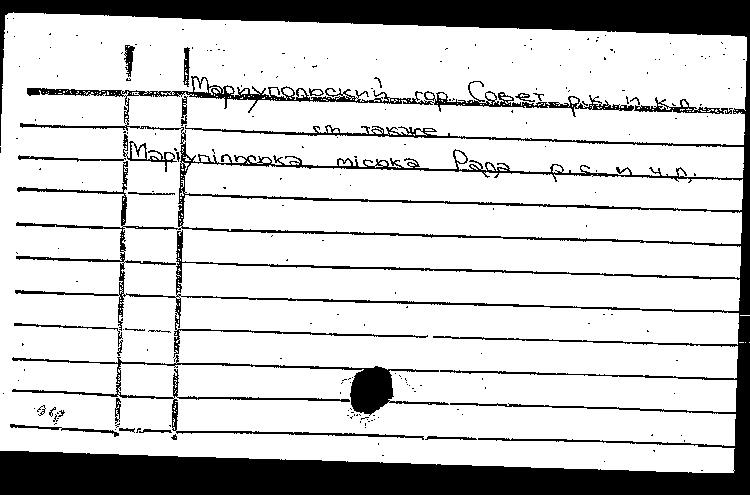 Мариупольский гор. Совет р.к. и к.д.
см также.
Маріупільська міська Рада р.с. и ч.д.